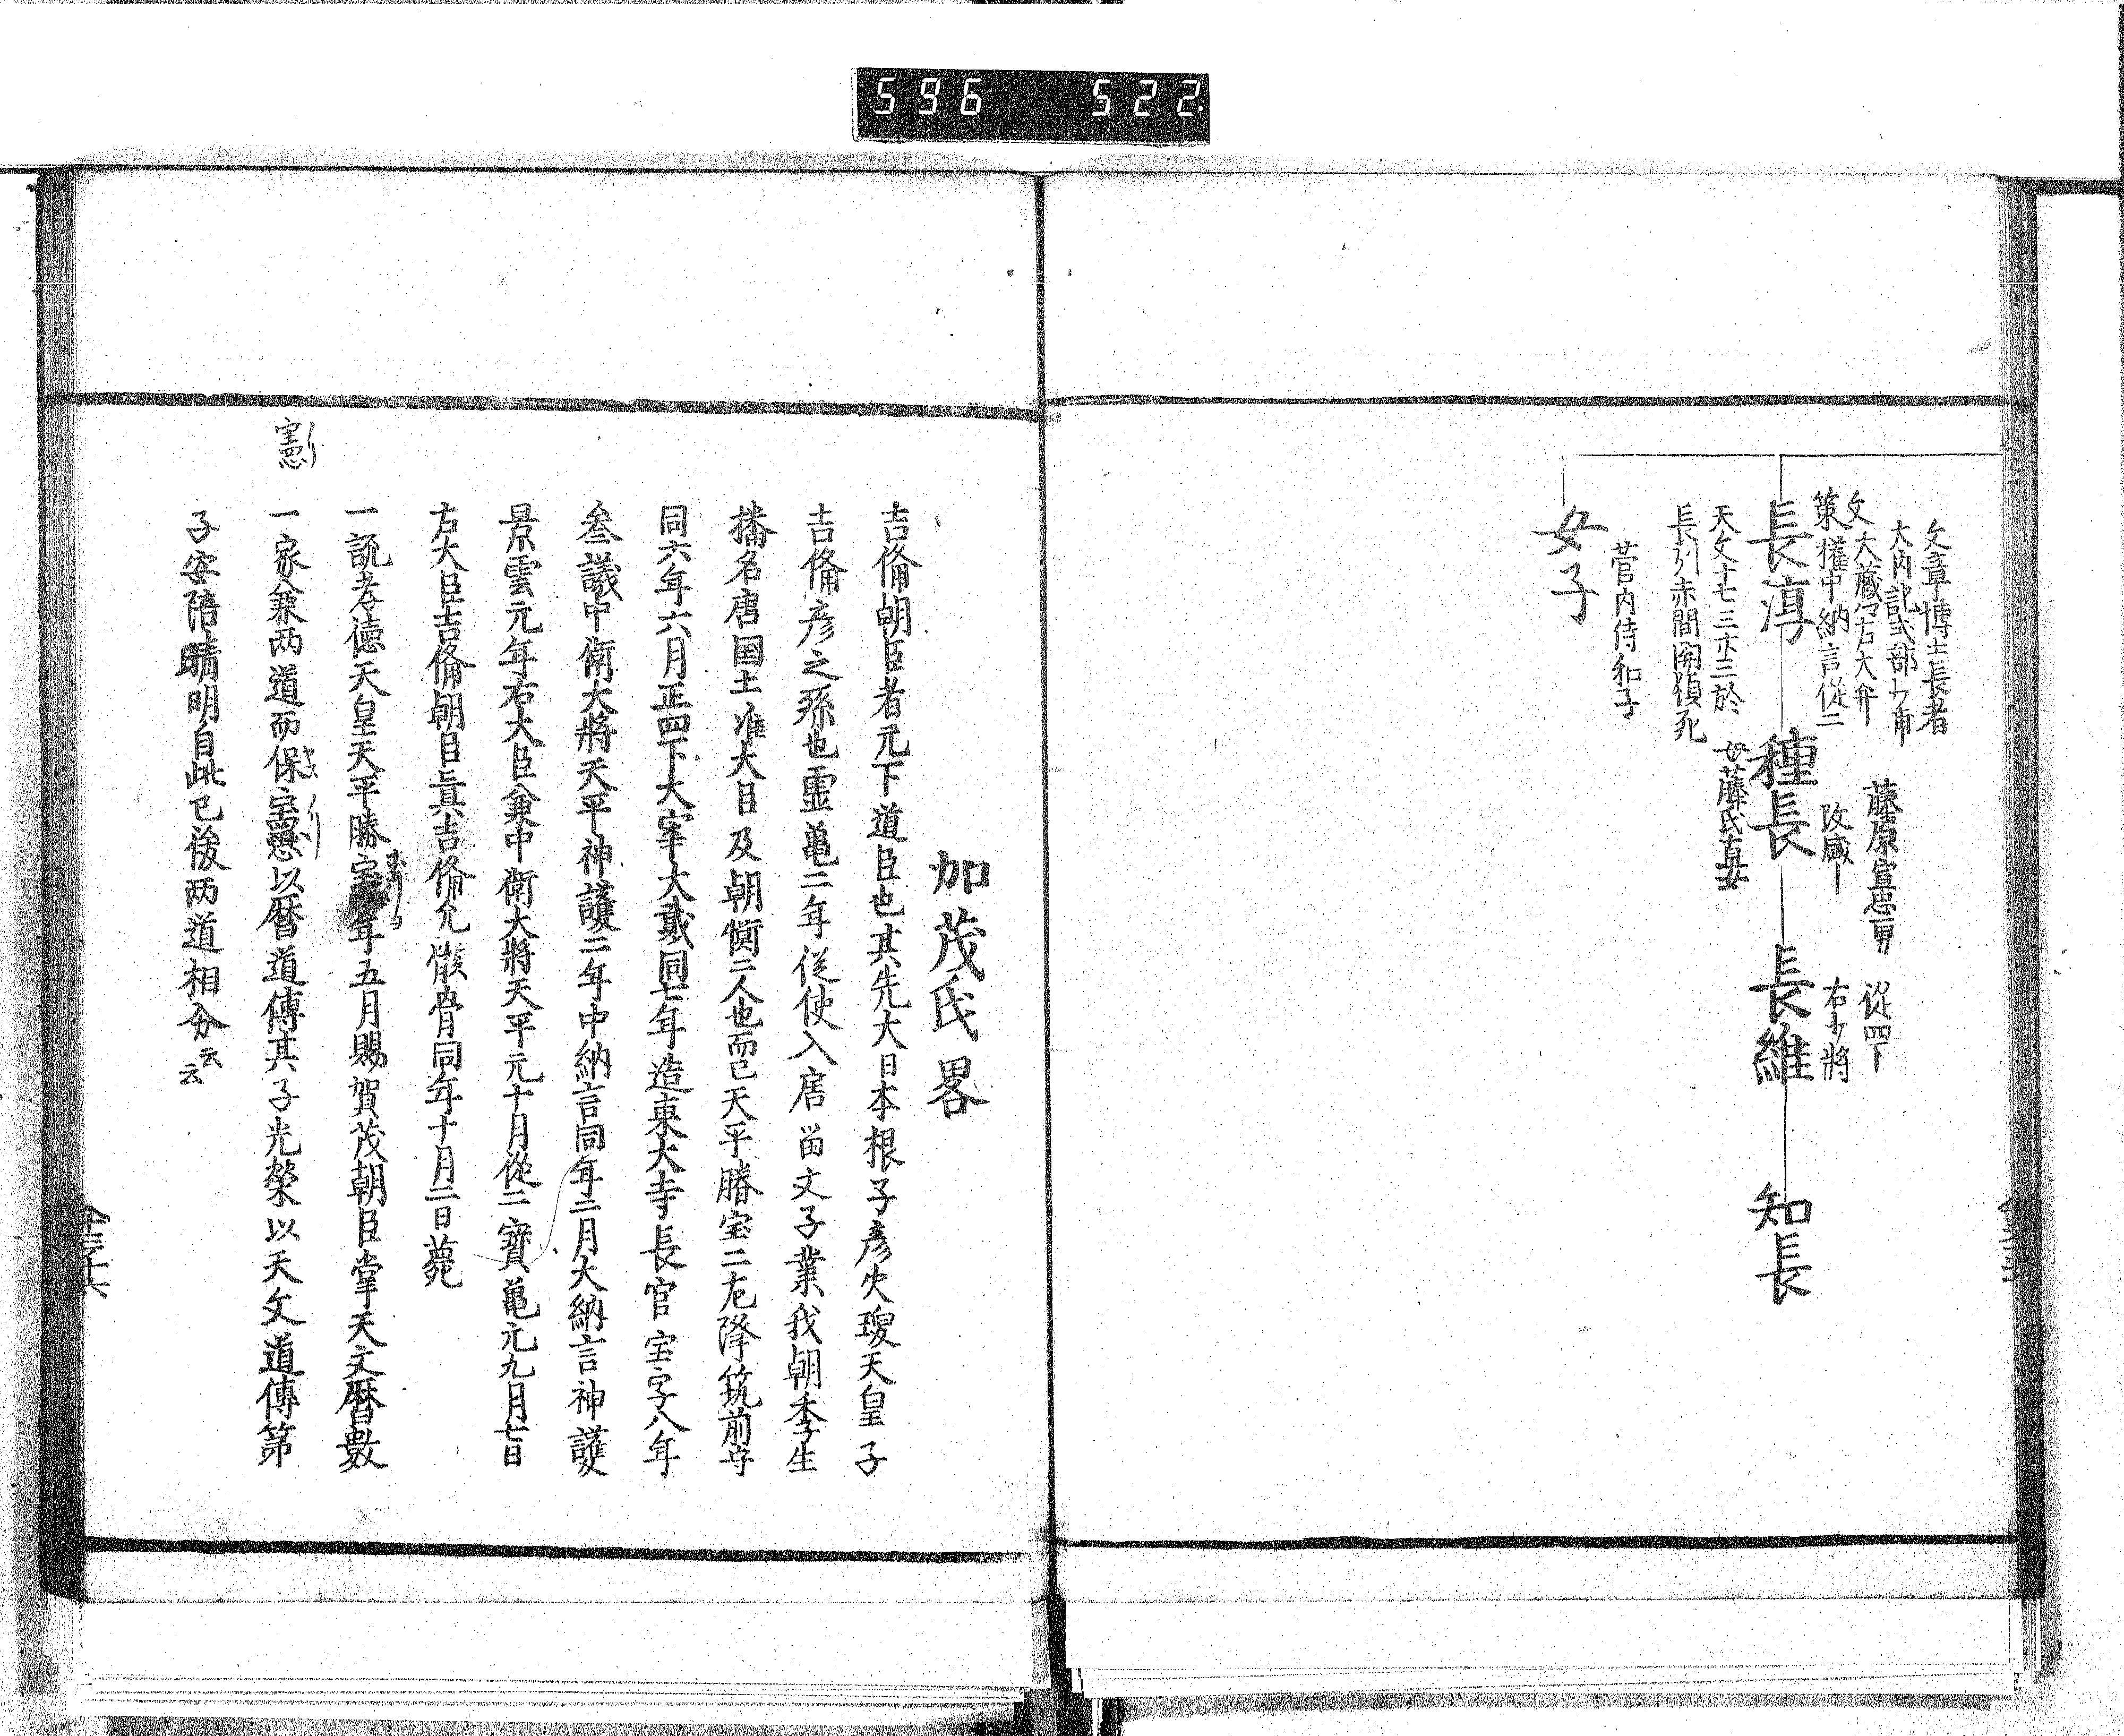 596 522
文章博士長者
大内記式部少甫
文大蔵卿右大弁
策権中納言従二
長淳
天文十七三廿三於
長川赤間関頓死
藤原宣忠男
改咸―
種長
母藤氏直女
従四下
右少将
長維
知長
菅内侍和子
女子
加茂氏畧
吉俻朝臣者元下道臣也其先大日本根子彦火瓊天皇子
吉俻彦之孫也霊亀二年従使入唐畄文子業我朝季生
播名唐国土准大臣及朝衡二人也而已天平勝宝二左降筑前守
同六年六月正四下大宰大貳同七年造東大寺長官宝字八年
叅議中衛大將天平神護二年中納言同年二月大納言神護
景雲元年右大臣兼中衛大將天平元十月從二寶亀元九月七日
右大臣吉俻朝臣眞吉俻乞骸骨同年十月二日薨
一説孝德天皇天平勝宝年五月賜賀茂朝臣掌天文暦數
憲
一家兼两道而保憲以暦道傳其子光榮以天文道傳第
子安陪晴明自此已後两道相分云云